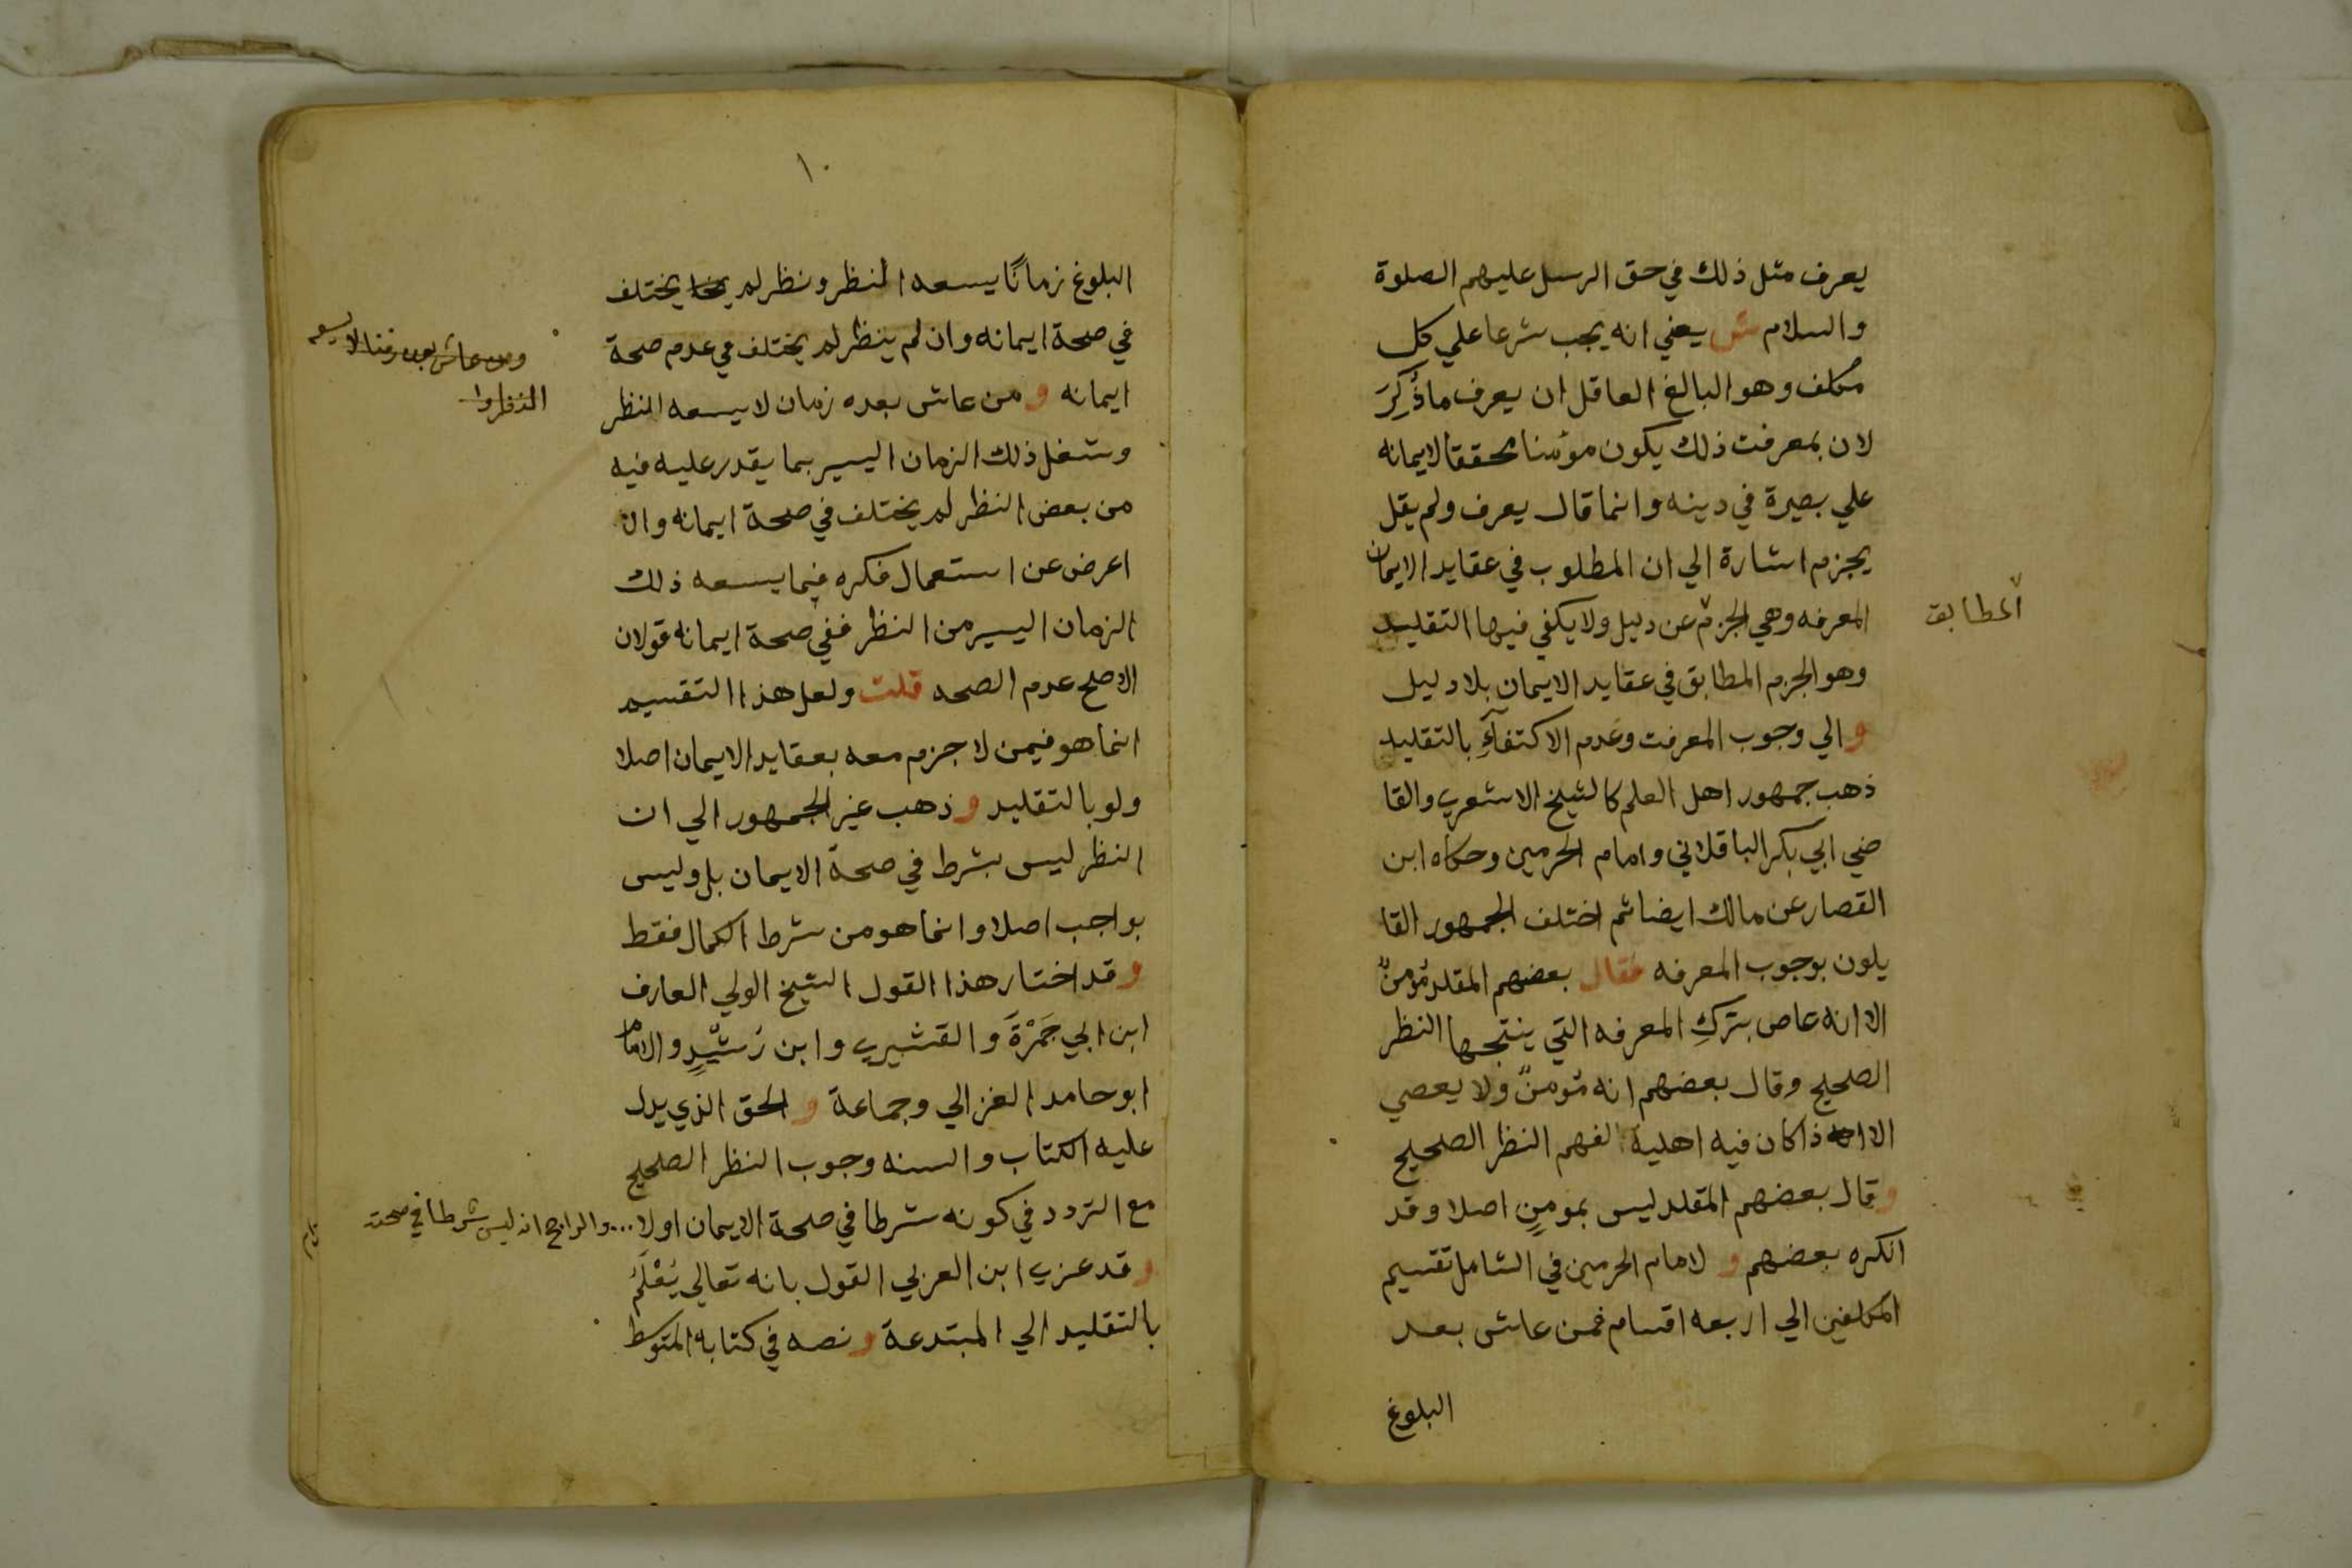 يعرف مثل ذلك في حق الرسل عليهم الصلوة
والسلام ش يعني انه يجب شرعا علي كل
مكلف وهو البالغ العاقل ان يعرف ما ذُكِرَ
لان بمعرفت ذلك يكون مؤمنا محققا لايمانه
علي بصيرة في دينه وانما قال يعرف ولم يقل
يجزم اشارة الي ان المطلوب في عقايد الايمان
المعرفه وهي الجزم عن دليل ولا يكفي فيها التقليد
المطابق
وهو الجزم المطابق في عقايد الايمان بلا دليل
والي وجوب المعرفت وعدم الاكتفآءِ بالتقليد
ذهب جمهور اهل العلم كالشيخ الاشعري والقا
ضي ابي بكر الباقلاني وامام الحرمين وحكاه ابن
القصار عن مالك ايضا ثم اختلف الجمهور القا
يلون بوجوب المعرفه فقال بعضهم المقلد مؤمنٌ
الا انه عاص بتركِ المعرفه التي ينتجها النظر
الصحيح وقال بعضهم انه مؤمنٌ ولا يعصي
الا اذا كان فيه اهلية لفهم النظر الصحيح
وقال بعضهم المقلد ليس بمومنٍ اصلا وقد
انكره بعضهم و لامام الحرمين في الشامل تقسيم
المكلفين الي اربعه اقسام فمن عاش بعد
البلوغ
١٠
البلوغ زمانًا يسعه النظر ونظر لم يختلف
في صحة ايمانه وان لم ينظر لم يختلف في عدم صحة
ومن عاش بعده زمنا لا يسعه
النظر وا
ايمانه و من عاش بعده زمان لا يسعه النظر
وشغل ذلك الزمان اليسير بما يقدر عليه فيه
من بعض النظر لم يختلف في صحة ايمانه وان
اعرض عن استعمال فكره فيما يسعه ذلك
الزمان اليسير من النظر ففي صحة ايمانه قولان
الاصح عدم الصحه قلت ولعل هذا التقسيم
انما هو فيمن لا جزم معه بعقايد الايمان اصلا
ولو بالتقليد و ذهب غير الجمهور الي ان
النظر ليس بشرط في صحة الايمان بل وليس
بواجب اصلا وانما هو من شرط الكمال فقط
وقد اختار هذا القول الشيخ الولي العارف
ابن ابي جَمْرَةَ والقشيري وابن رُشْدٍ والامام
ابو حامد الغزالي وجماعة و الحق الذي يدل
عليه الكتاب والسنه وجوب النظر الصحيح
مع التردد في كونه شرطا في صحة الايمان اولا ... والراجح انه ليس شرطا في صحته
وقد عزي ابن العربي القول بانه تعالي يُعْلَمُ
بالتقليد الي المبتدعة و نصه في كتابه المتوسط